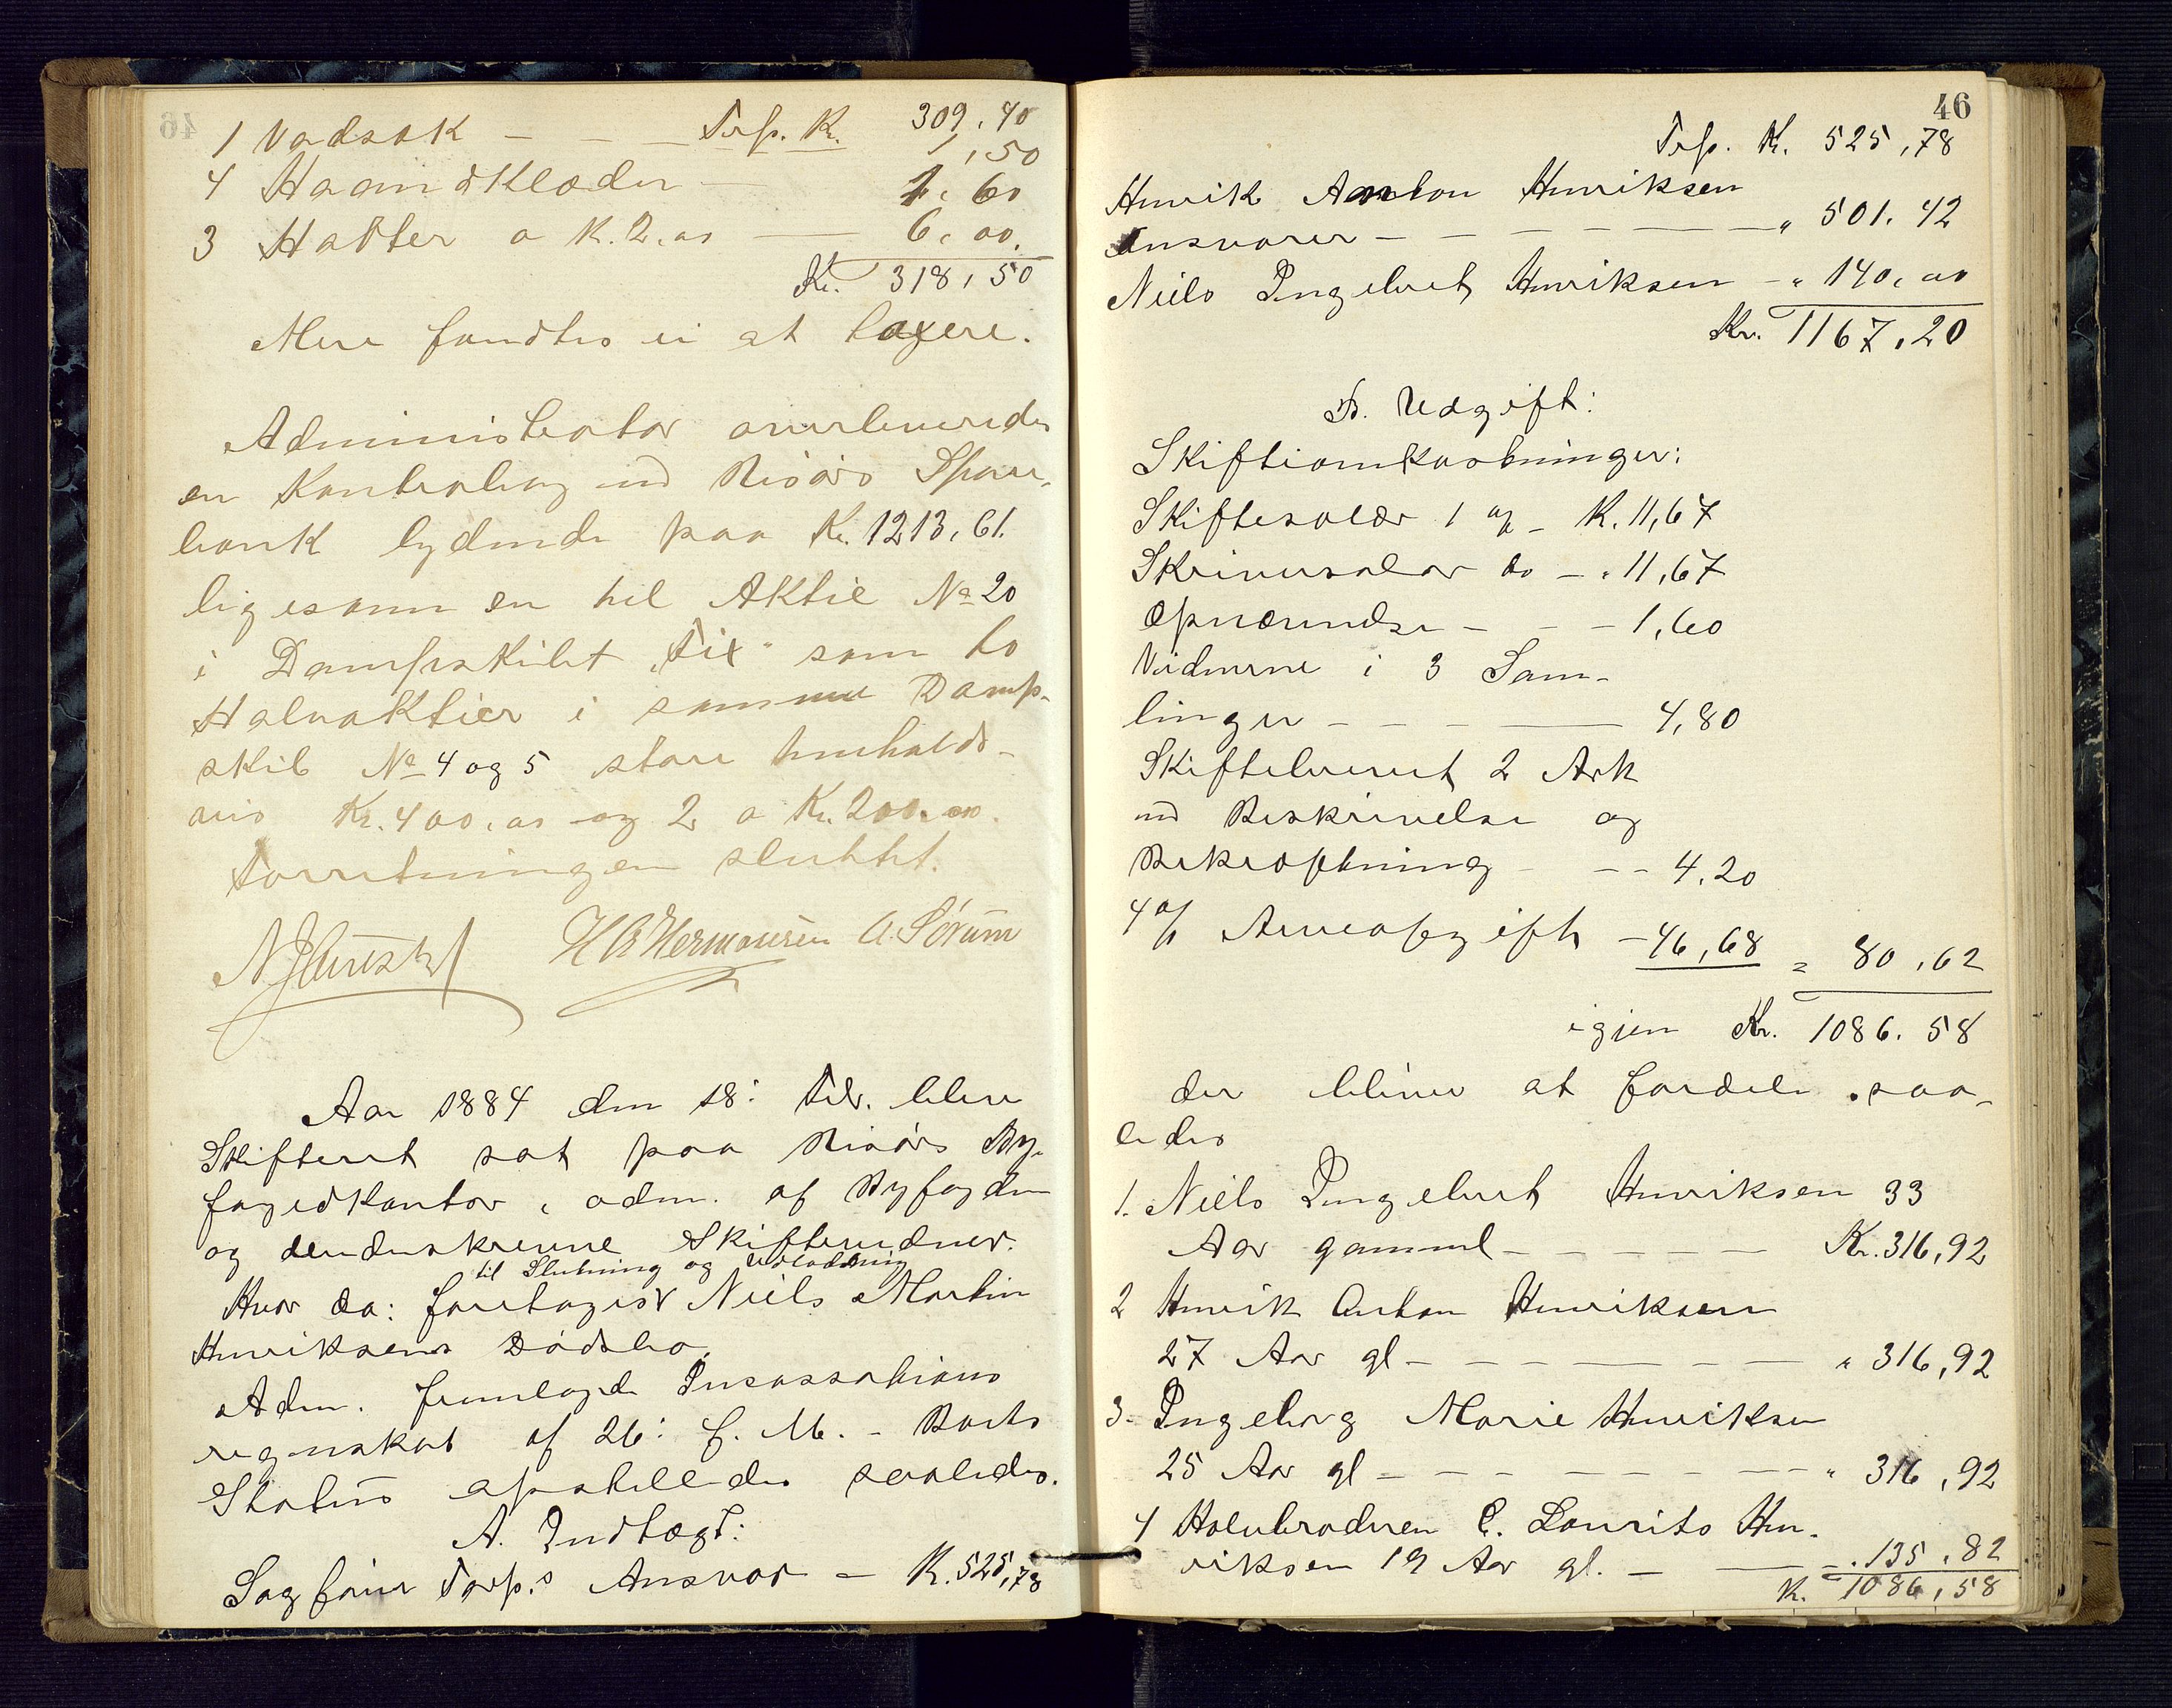 Trsp. Kr. 309,40
1 Vadsæk — — — 1,50
4 Haandklæder — 1,60
3 Hatter a K. 2,00 — 6,00.
Kr. 318,50
Mere fandtes ei at taxere.
Administrator overleveredes
en Kontrabog med Risørs Spare-
bank lydende paa Kr. 1213,61.
ligesom en hel Aktie No 20
i Dampskibet "Fix" som to
Halvaktier i samme Damp-
skib No 4 og 5 store henholds-
vis Kr. 400,00 og 2 a Kr. 200,00.
Forretningen sluttet.
HB Hermansen A. Sørum
Aar 1884 den 18: Febr. blev
Skifteret sat paa Risørs By-
fogedkontor, adm. af Byfogden
og dendenskrevne Skiftevidner.
til Slutning og Udlodning
Hvor da: foretoges Niels Martin
Henriksens Dødsbo.
Adm. fremlagde Incassations
regnskab af 26: f. M. - Boets
Status opstilledes saaledes.
A. Indtægt:
Sagfører Torp.s Ansvar — K. 525,78
46
Trsp. K. 525,78
Henrik Anton Henriksen
Ansvarer — — — — — " 501.42
Niels Ingebret Henriksen — " 140,00
Kr. 1167.20
B. Udgift:
Skifteomkostninger:
Skiftesalær 1 % — K. 11,67
Skriversalær do — " 11,67
Opnævnelse — — — 1,60
Vidnerne i 3 Sam-
linger — — — — 4,80
Skiftebrevet 2 Ark
med Beskrivelse og
Bekræftning — — 4.20
4 % Arveafgift — 46,68 = 80,62
igjen Kr. 1086.58
der bliver at fordele saa-
ledes
1. Niels Ingebret Henriksen 33
Aar gammel — — — — — Kr. 316,92
2 Henrik Anton Henriksen
27 Aar gl — — — — — " 316,92
3. Ingeborg Marie Henriksen
25 Aar gl — — — — — " 316,92
4 Halvbroderen C. Laurits Hen-
riksen 19 Aar gl. — — — " 135,82
K. 1086,58